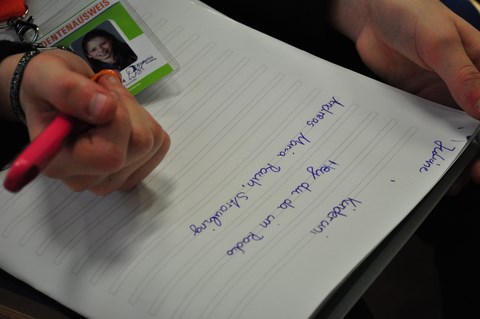 DENTENAUSWEIS
Kinderuni
Hey du da im Radio
Andreas Maria Straubing